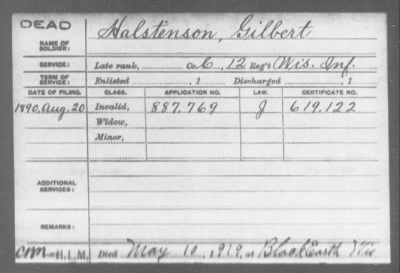 DEAD
NAME OF SOLDIER: Halstenson, Gilbert
SERVICE: Late rank, Co. C, 12 Reg't Wis. Inf.
TERM OF SERVICE: Enlisted , 1 Discharged , 1
DATE OF FILING. CLASS. APPLICATION NO. LAW. CERTIFICATE NO.
1890, Aug. 20 Invalid, 887.769 J 619.122
Widow,
Minor,
ADDITIONAL SERVICES:
REMARKS:
H.L.M. Died May 10, 1919, at Black Earth Wis